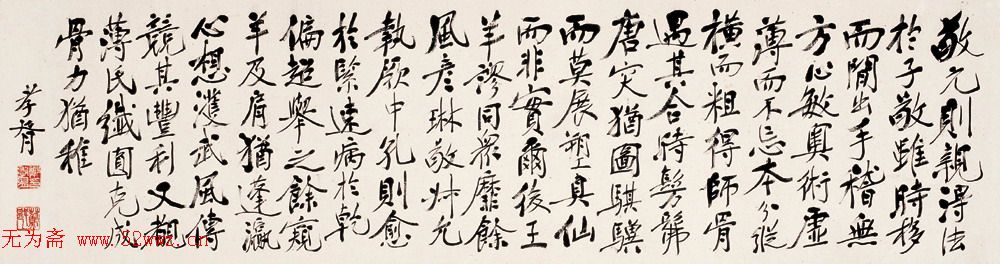 敬元則親得法
於子敬雖時移
而閒出手稽無
方心敏奧術虛
薄而不忘本分縱
橫而粗得師骨
遇其合時髣髴
唐突猶圖騏驥
而莫展塑真仙
而非實爾後王
羊謬同眾靡餘
風彥琳敬叔允
執厥中孔則愈
於緊速病於乾
偏超舉之餘窺
羊及肩猶蓬瀛
心想漼武風儔
競其豐利又觀
薄氏纖圓克成
骨力猶稚
孝胥
无为斋